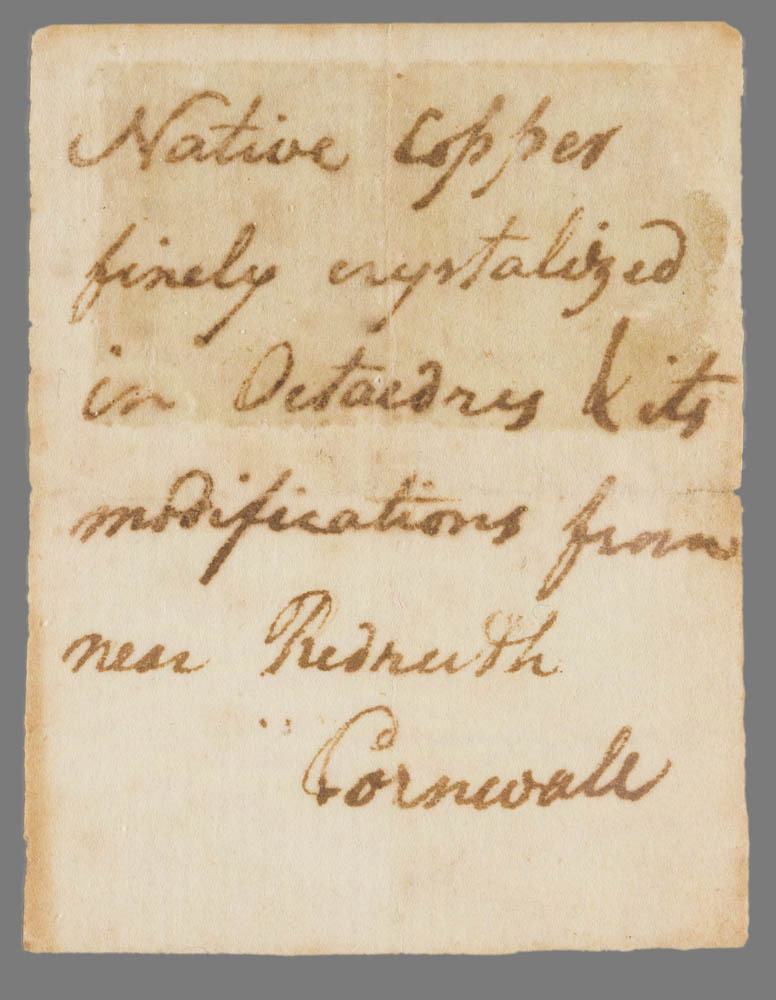 Native Copper
finely crystalized
in Octaedrys & its
modifications from
near Redruth
Cornwall